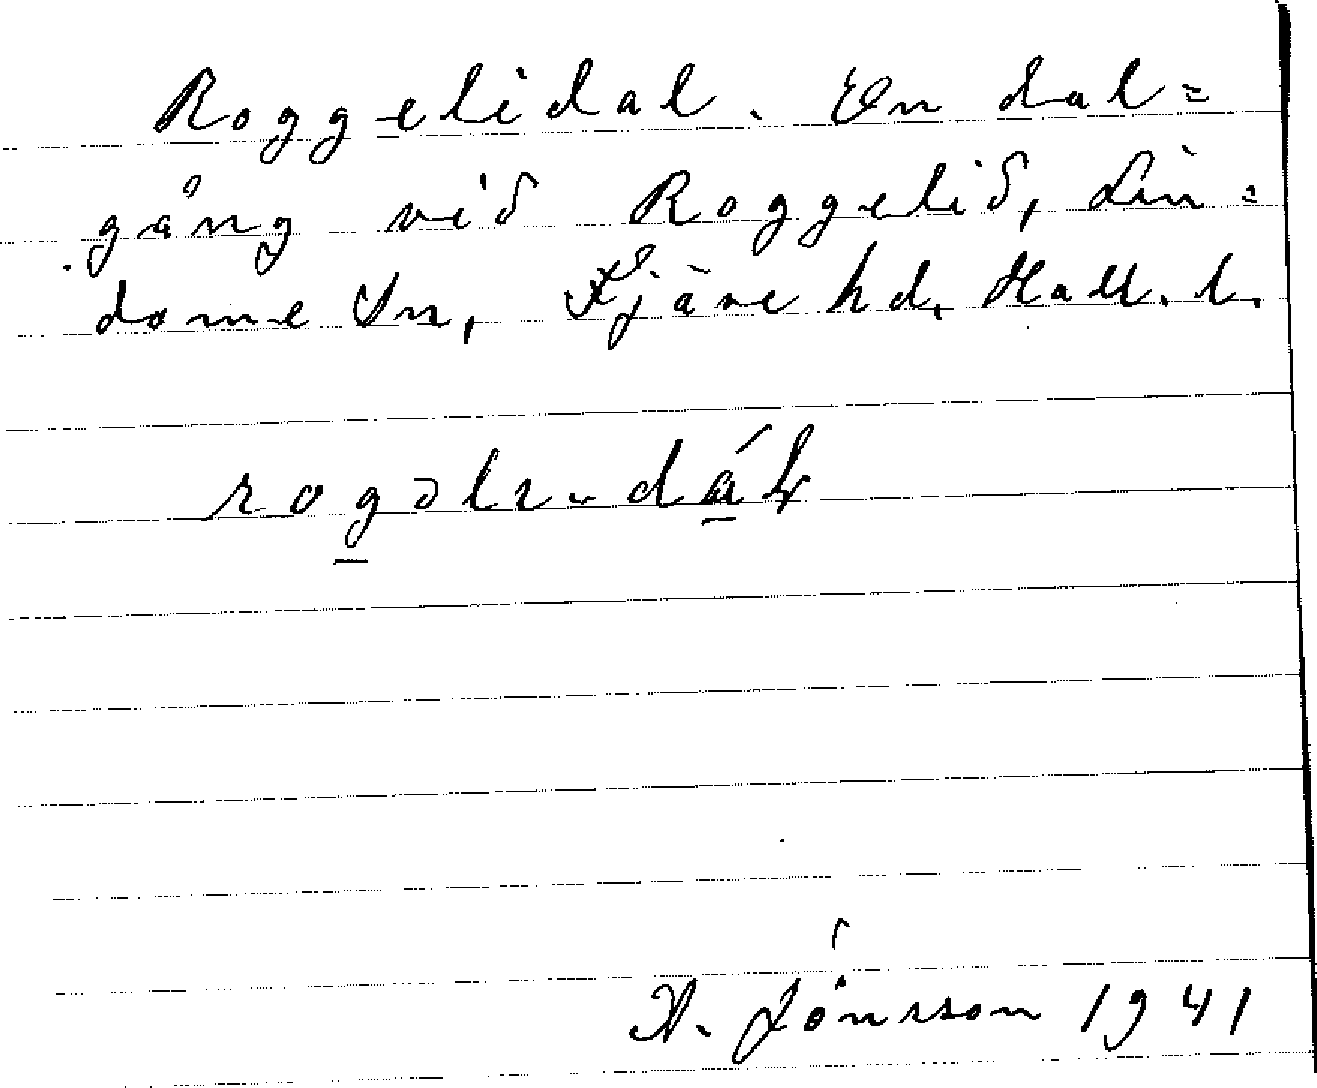 Roggelidal. En dal=
gång vid Roggelid, Lin=
dome Sn, Fjäre hd. Hall. l.
rogəlɩ-dál
A. Jönsson 1941